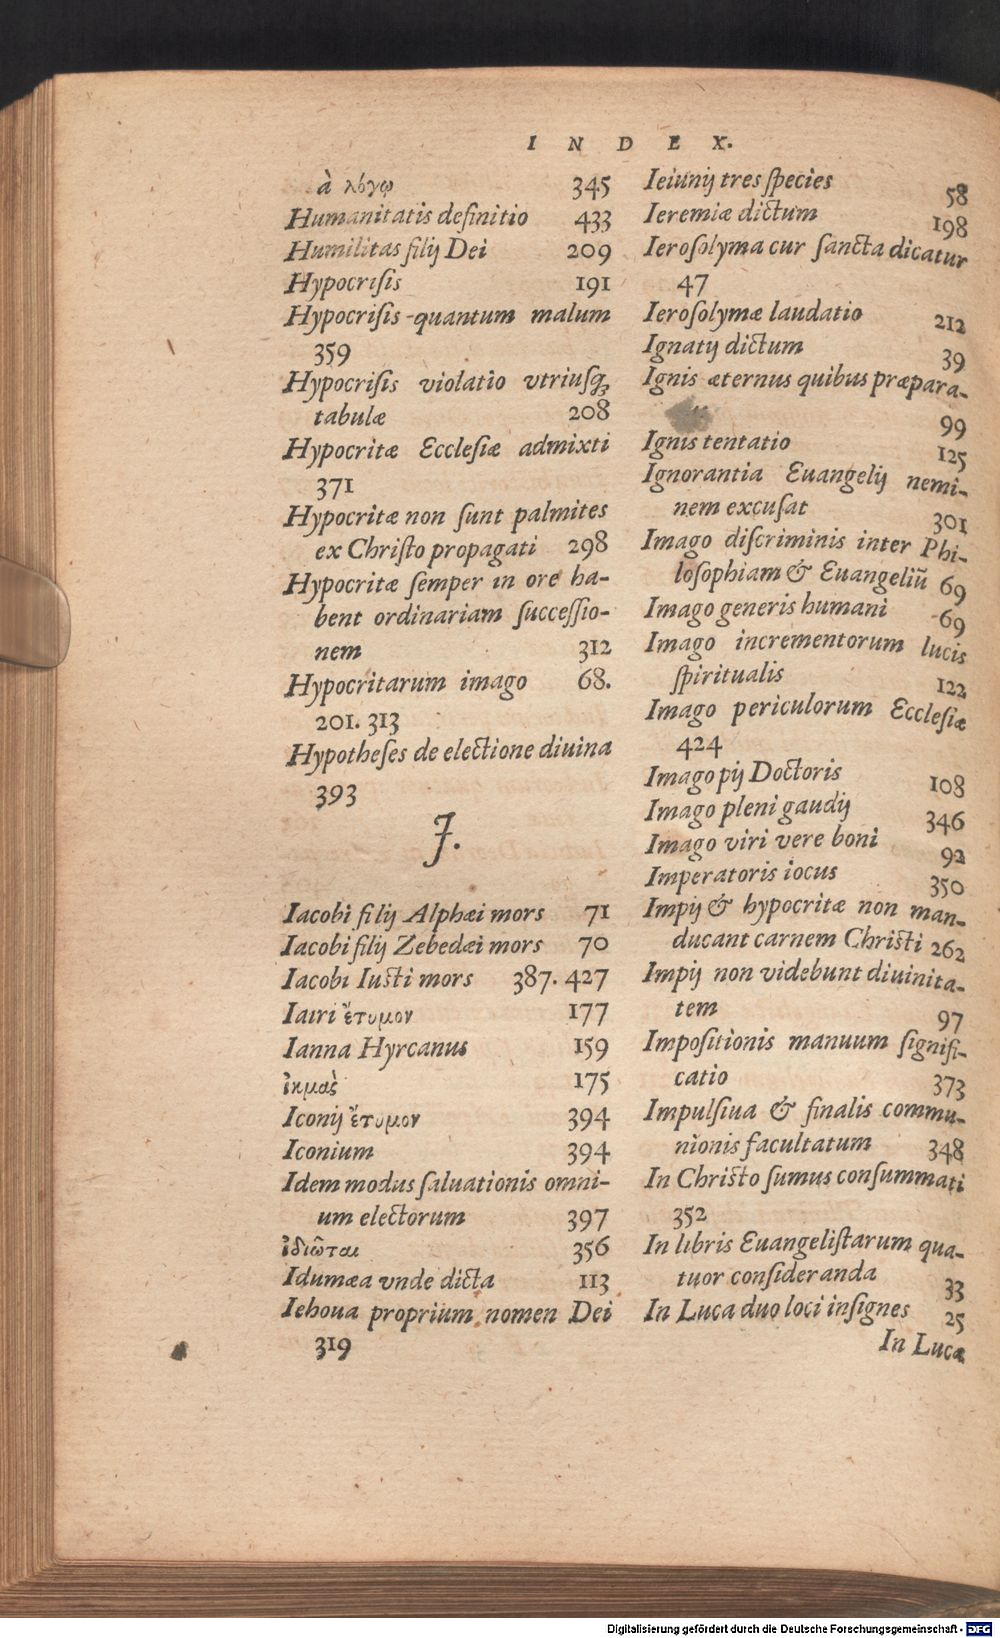 INDEX.
à λόγῳ 345
Humanitatis definitio 433
Humilitas filij Dei 209
Hypocrisis 191
Hypocrisis quantum malum
359
Hypocrisis violatio vtriusq́;
tabulæ 208
Hypocritæ Ecclesiæ admixti
371
Hypocritæ non sunt palmites
ex Christo propagati 298
Hypocritæ semper in ore ha-
bent ordinariam successio-
nem 312
Hypocritarum imago 68.
201. 313
Hypotheses de electione diuina
393
J.
Iacobi filij Alphæi mors 71
Iacobi filij Zebedæi mors 70
Iacobi Iusti mors 387. 427
Iairi ἔτυμον 177
Ianna Hyrcanus 159
ἰκμας 175
Iconij ἔτυμον 394
Iconium 394
Idem modus saluationis omni-
um electorum 397
ἰδιῶται 356
Idumæa vnde dicta 113
Iehoua proprium nomen Dei
319
Ieiunij tres species 58
Ieremiæ dictum 198
Ierosolyma cur sancta dicatur
47
Ierosolymæ laudatio 212
Ignatij dictum 39
Ignis æternus quibus præpara-
99
Ignis tentatio 125
Ignorantia Euangelij nemi-
nem excusat 301
Imago discriminis inter Phi-
losophiam & Euangeliū 69
Imago generis humani 69
Imago incrementorum lucis
spiritualis 122
Imago periculorum Ecclesiæ
424
Imago pij Doctoris 108
Imago pleni gaudij 346
Imago viri vere boni 92
Imperatoris iocus 350
Impij & hypocritæ non man-
ducant carnem Christi 262
Impij non videbunt diuinita-
tem 97
Impositionis manuum signifi-
catio 373
Impulsiua & finalis commu-
nionis facultatum 348
In Christo sumus consummati
352
In libris Euangelistarum qua-
tuor consideranda 33
In Luca duo loci insignes 25
In Lucæ
Digitalisierung gefördert durch die Deutsche Forschungsgemeinschaft - DFG